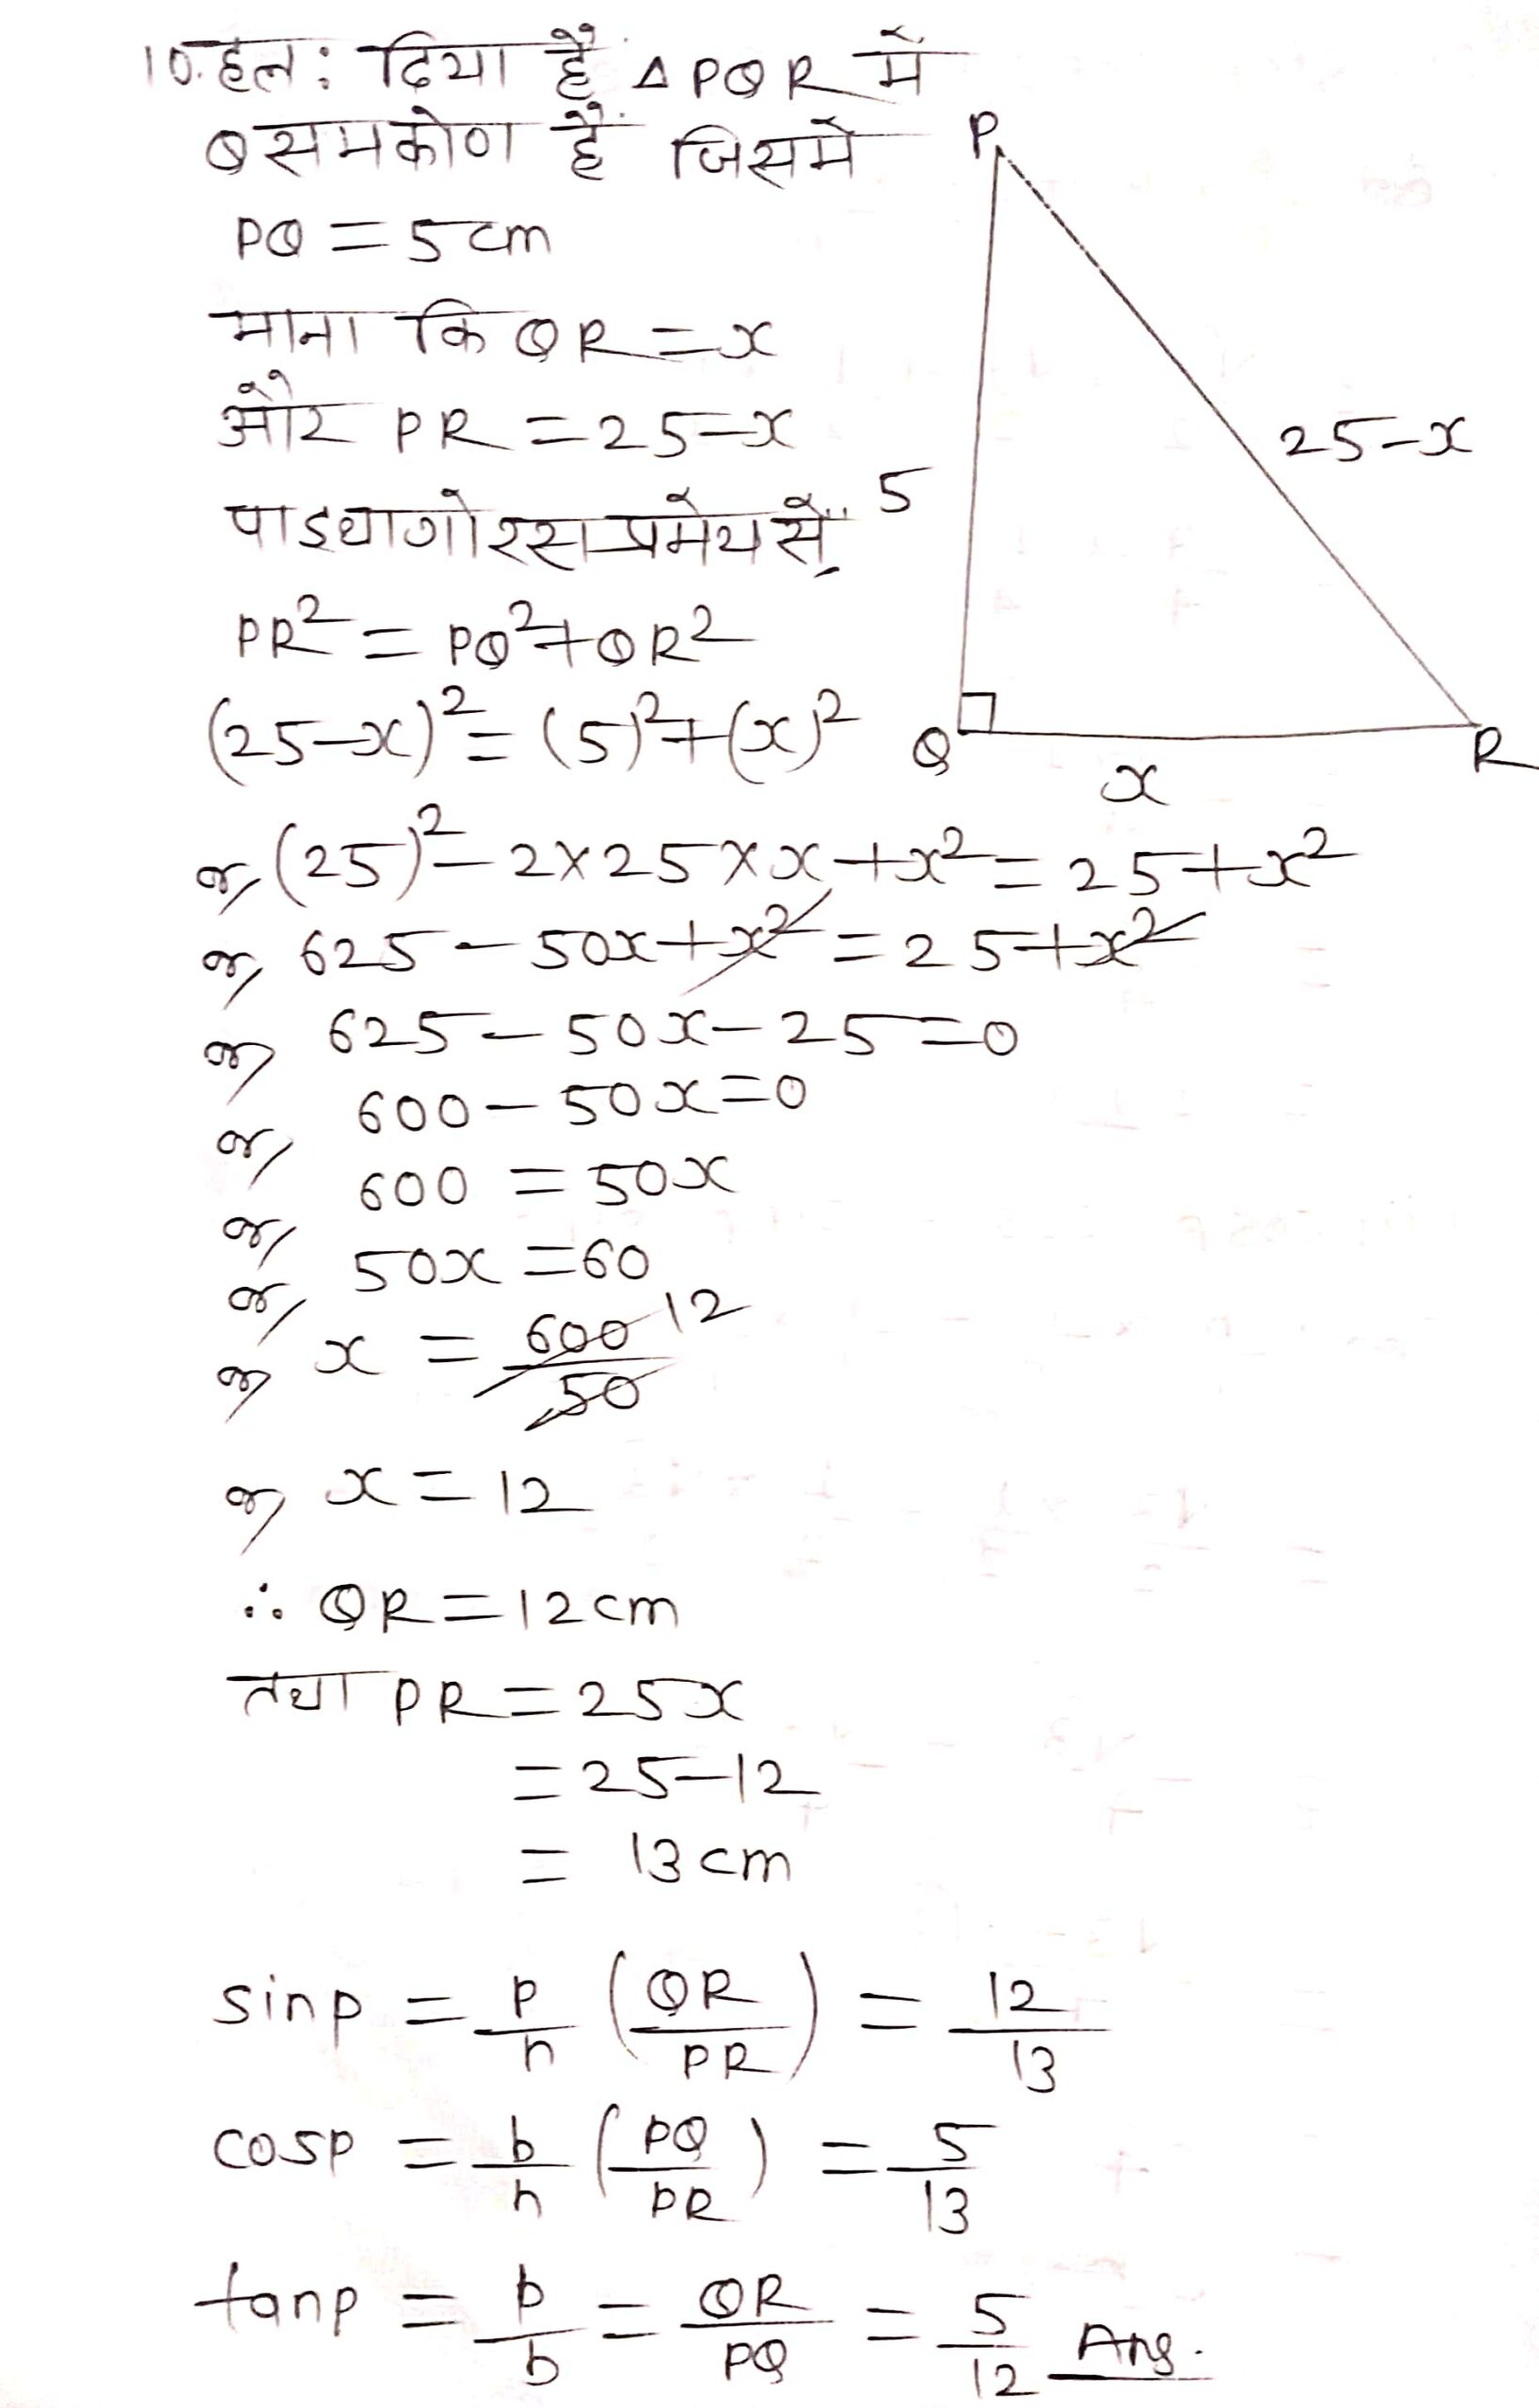 10. हल: दिया हैं △PQR में
Q समकोण हैं जिसमें
PQ = 5 cm
माना कि QR = x
और PR = 25-x
पाइथागोरस प्रमेय सें,
PR² = PQ²+QR²
(25-x)² = (5)²+(x)²
or, (25)²-2×25×x+x² = 25+x²
or, 625-50x+x² = 25+x²
or, 625-50x-25=0
or, 600-50x=0
or, 600 = 50x
or, 50x = 60
or, x = 600/50 12
or, x = 12
∴ QR = 12cm
तथा PR = 25x
= 25-12
= 13 cm
sinp = p/h (QR/PR) = 12/13
cosp = b/h (PQ/PR) = 5/13
tanp = p/b = QR/PQ = 5/12 Ans.
P
5
25-x
Q
x
R